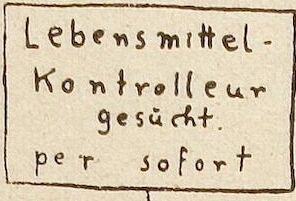 Lebensmittel-
Kontrolleur
gesucht.
per sofort